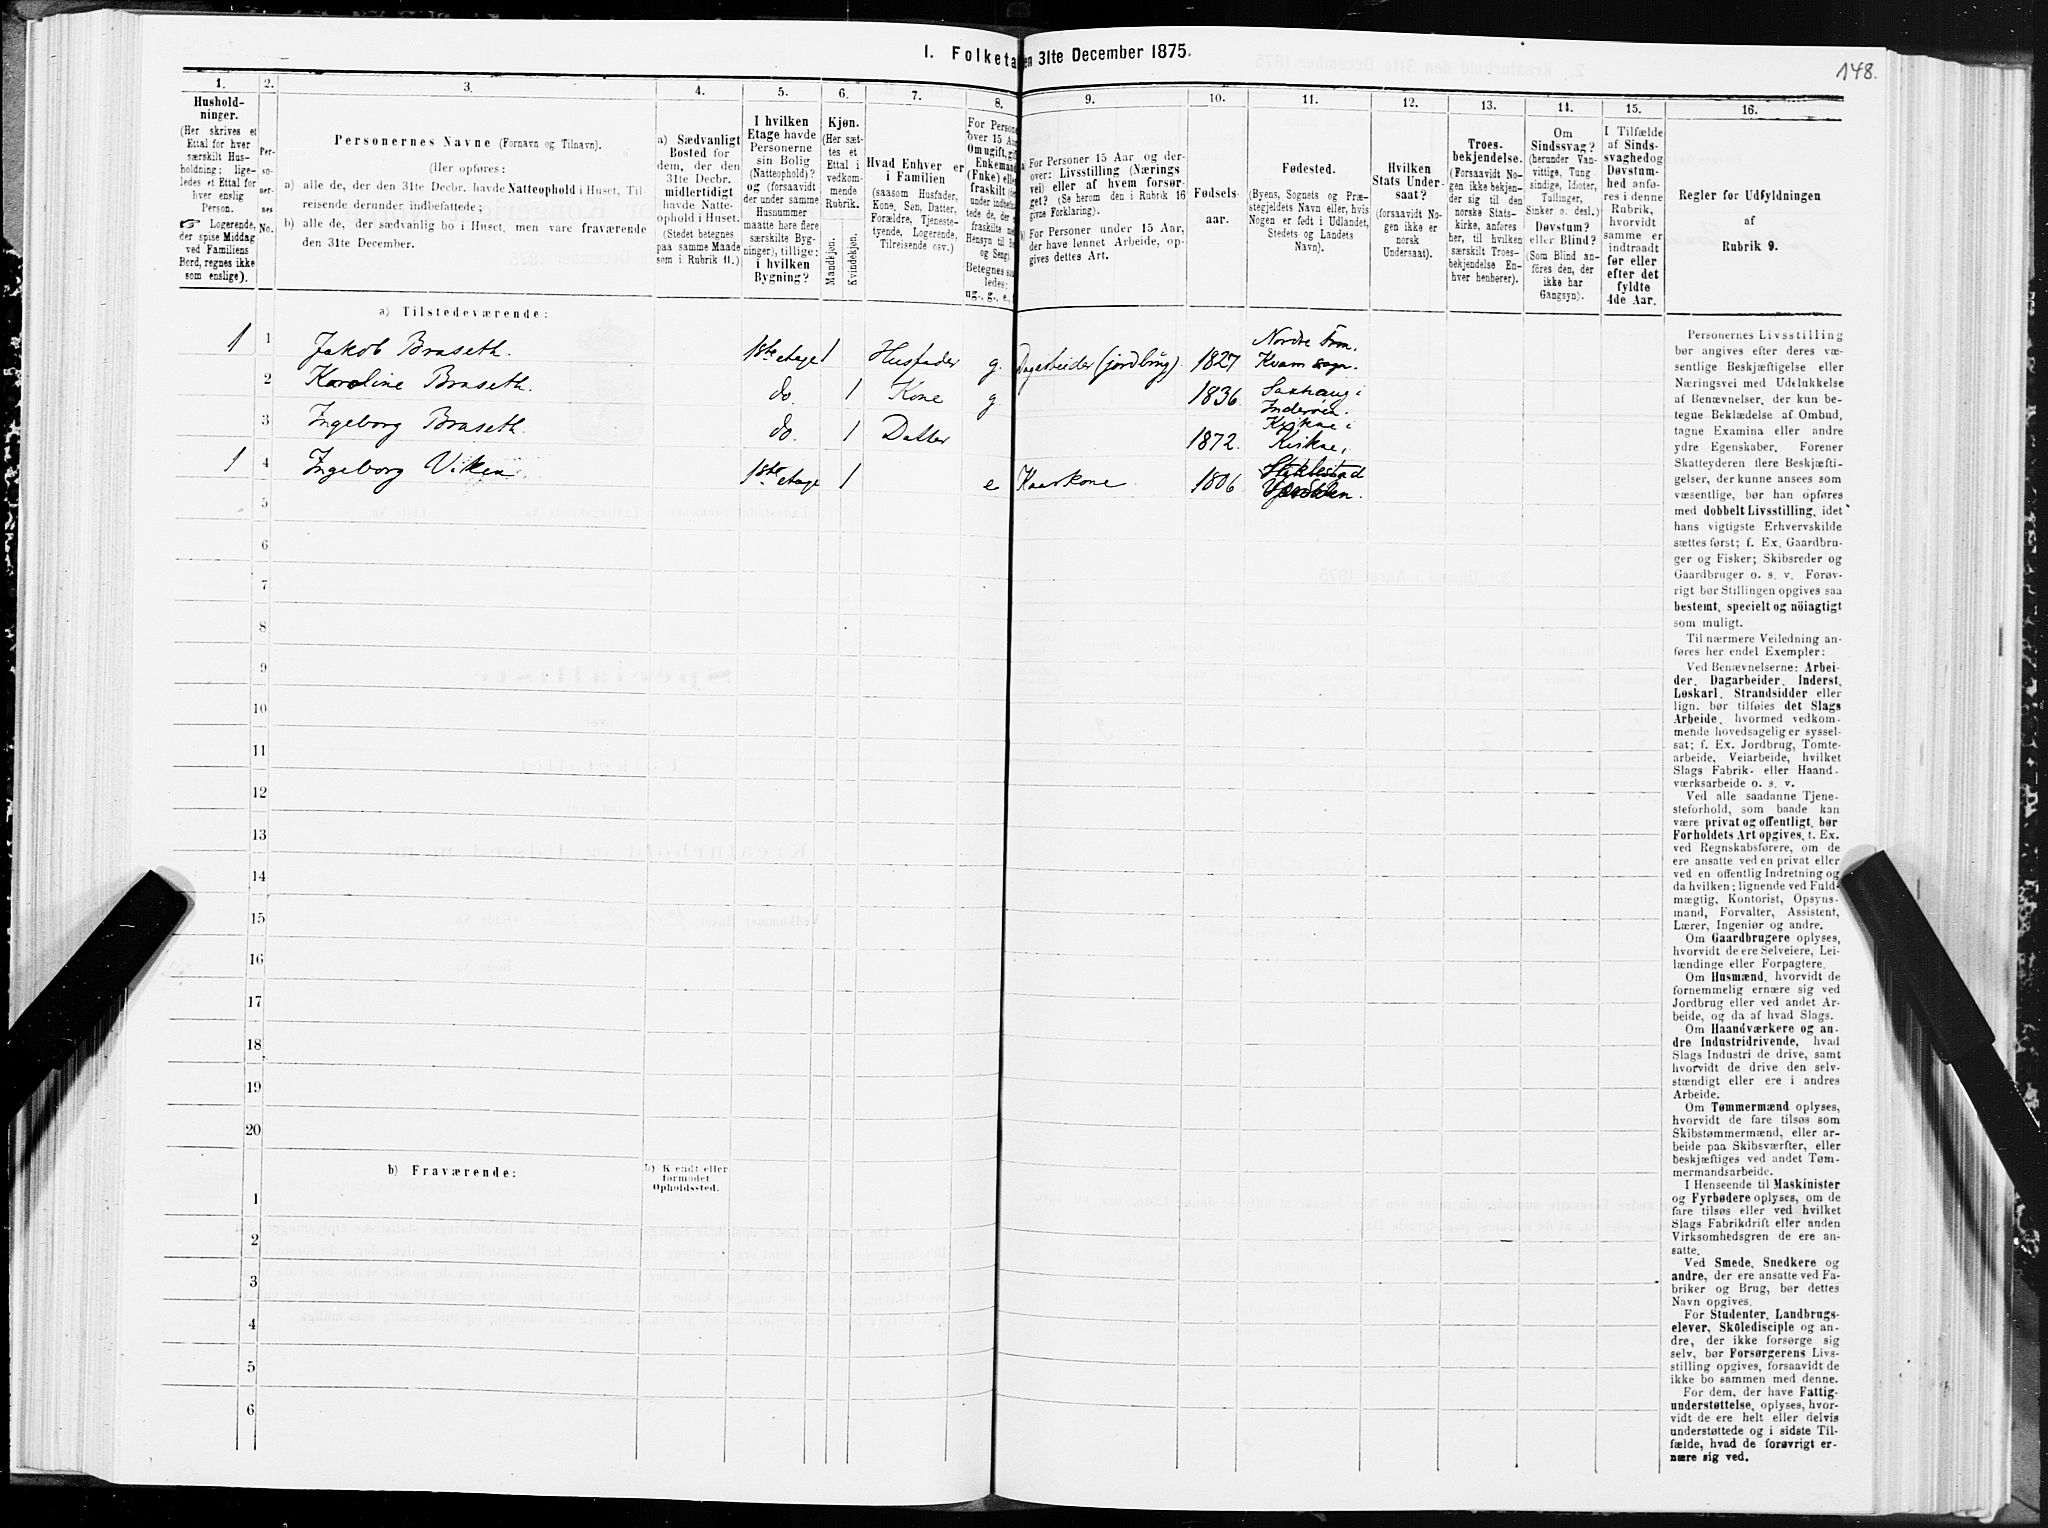 148.
I. Folketa en 31te December 1875.
1. 2. 3. 4. 5. 6. 7. 8. 9. 10. 11. 12. 13. 14. 15. 16.
Hushold-
ninger.
(Her skrives et
Ettal for hver
særskilt Hus-
holdning; lige-
ledes et Ettal for
hver enslig
Person.
☞ Logerende,
der spise Middag
ved Familiens
Bord, regnes ikke
som enslige).
Per-
so-
ner-
nes
No.
Personernes Navne (Fornavn og Tilnavn).
(Her opføres:
a) alle de, der den 31te Decbr. havde Natteophold i Huset, Til-
reisende derunder indbefattede;
b) alle de, der sædvanlig bo i Huset, men vare fraværende
den 31te December.
a) Sædvanligt
Bosted for
dem, der den
31te Decbr.
midlertidigt
havde Natte-
ophold i Huset.
(Stedet betegnes
paa samme Maade
som i Rubrik 11.)
I hvilken
Etage havde
Personerne
sin Bolig
(Natteophold)?
og (forsaavidt
der under samme
Husnummer
maatte høre flere
særskilte Byg-
ninger), tillige:
i hvilken
Bygning?
Kjøn.
(Her sæt-
tes et
Ettal i
vedkom-
mende
Rubrik.
Mandkjøn.
Kvindekjøn.
Hvad Enhver er
i Familien
(saasom Husfader,
Kone, Søn, Datter,
Forældre, Tjeneste-
tyende, Logerende,
Tilreisende osv.)
For Persone
over 15 Aa
Om ugift, gif
Enkemand
(Enke) elle
fraskilt
Betegnes
ledes:
ug., g., e.,
For Personer 15 Aar og der-
over: Livsstilling (Nærings
vei) eller af hvem forsør-
get? (Se herom den i Rubrik 16
givne Forklaring).
For Personer under 15 Aar,
der have lønnet Arbeide, op-
gives dettes Art.
Fødsels-
aar.
Fødested.
(Byens, Sognets og Præ-
stegjeldets Navn eller, hvis
Nogen er født i Udlandet,
Stedets og Landets
Navn).
Hvilken
Stats Under-
saat?
(forsaavidt No-
gen ikke er
norsk
Undersaat).
Troes-
bekjendelse.
(Forsaavidt No-
gen ikke bekjen-
der sig til den
norske Stats-
kirke, anføres
her, til hvilken
særskilt Troes-
bekjendelse En-
hver henhører).
Om
Sindssvag?
(herunder Van-
vittige, Tung
sindige, Idioter,
Tullinger,
Sinker o. desl.)
Døvstum?
eller Blind?
(Som Blind an-
føres den, der
ikke har
Gangsyn).
I Tilfælde
af Sinds-
svaghed og
Døvstum-
hed anfø-
res i denne
Rubrik,
hvorvidt
samme er
indtraadt
før eller
efter det
fyldte
4de Aar.
Regler for Udfyldningen
af
Rubrik 9.
a) Tilstedeværende:
1 1 Jakob Braseth. 1ste etage 1 Husfader g. Dagarbeider (jordbrug). 1827 Nordre Trm. Kvam sogn.
2 Karoline Braseth. do. 1 Kone g. 1836. Saxhaug i Inderøen.
3 Ingeborg Braseth. do. 1 Datter 1872. Kirkne i Kirkne,
1 4 Ingeborg Viken. 1ste etage 1 e Kaarkone. 1806 Stiklestad Værdalen.
5
6
7
8
9
10
11
12
13
14
15
16
17
18
19
20
b) Fraværende:
b) Kjendt eller
formodet
Opholdssted.
1
2
3
4
5
6
Personernes Livsstilling
bør angives efter deres væ-
sentlige Beskjæftigelse eller
Næringsvei med Udelukkelse
af Benævnelser, der kun be-
tegne Beklædelse af Ombud,
tagne Examina eller andre
ydre Egenskaber. Forener
Skatteyderen flere Beskjæfti-
gelser, der kunne ansees som
væsentlige, bør han opføres
med dobbelt Livsstilling, idet
hans vigtigste Erhvervskilde
sættes først; f. Ex. Gaardbru-
ger og Fisker; Skibsreder og
Gaardbruger o. s. v. Forøv-
rigt bør Stillingen opgives saa
bestemt, specielt og nöiagtigt
som muligt.
Til nærmere Veiledning an-
føres her endel Exempler:
Ved Benævnelserne: Arbei-
der, Dagarbeider, Inderst,
Løskarl, Strandsidder eller
lign. bør tilføies det Slags
Arbeide, hvormed vedkom-
mende hovedsagelig er syssel-
sat; f. Ex. Jordbrug, Tomte-
arbeide, Veiarbeide, hvilket
Slags Fabrik- eller Haand-
værksarbeide o. s. v.
Ved alle saadanne Tjene-
steforhold, som baade kan
være privat og offentligt, bør
Forholdets Art opgives, t. Ex.
ved Regnskabsførere, om de
ere ansatte ved en privat eller
ved en offentlig Indretning og
da hvilken; lignende ved Fuld-
mægtig, Kontorist, Opsyns-
mand, Forvalter, Assistent,
Lærer, Ingeniør og andre.
Om Gaardbrugere oplyses,
hvorvidt de ere Selveiere, Lei-
lændinge eller Forpagtere.
Om Husmænd, hvorvidt de
fornemmelig ernære sig ved
Jordbrug eller ved andet Ar-
beide, og da af hvad Slags.
Om Haandværkere og an-
dre Industridrivende, hvad
Slags Industri de drive, samt
hvorvidt de drive den selv-
stændigt eller ere i andres
Arbeide.
Om Tømmermænd oplyses,
hvorvidt de fare tilsøs som
Skibstømmermænd, eller ar-
beide paa Skibsværfter, eller
beskjæftiges ved andet Tøm-
mermandsarbeide.
I Henseende til Maskinister
og Fyrbødere oplyses, om de
fare tilsøs eller ved hvilket
Slags Fabrikdrift eller anden
Virksomhedsgren de ere an-
satte.
Ved Smede, Snedkere og
andre, der ere ansatte ved Fa-
briker og Brug, bør dettes
Navn opgives.
For Studenter, Landbrugs-
elever, Skoledisciple og an-
dre, der ikke forsørge sig
selv, bør Forsørgerens Livs-
stilling opgives, forsaavidt de
ikke bo sammen med denne.
For dem, der have Fattig-
understøttelse, oplyses, hvor-
vidt de ere helt eller delvis
understøttede og i sidste Til-
fælde, hvad de forøvrigt er-
nære sig ved.